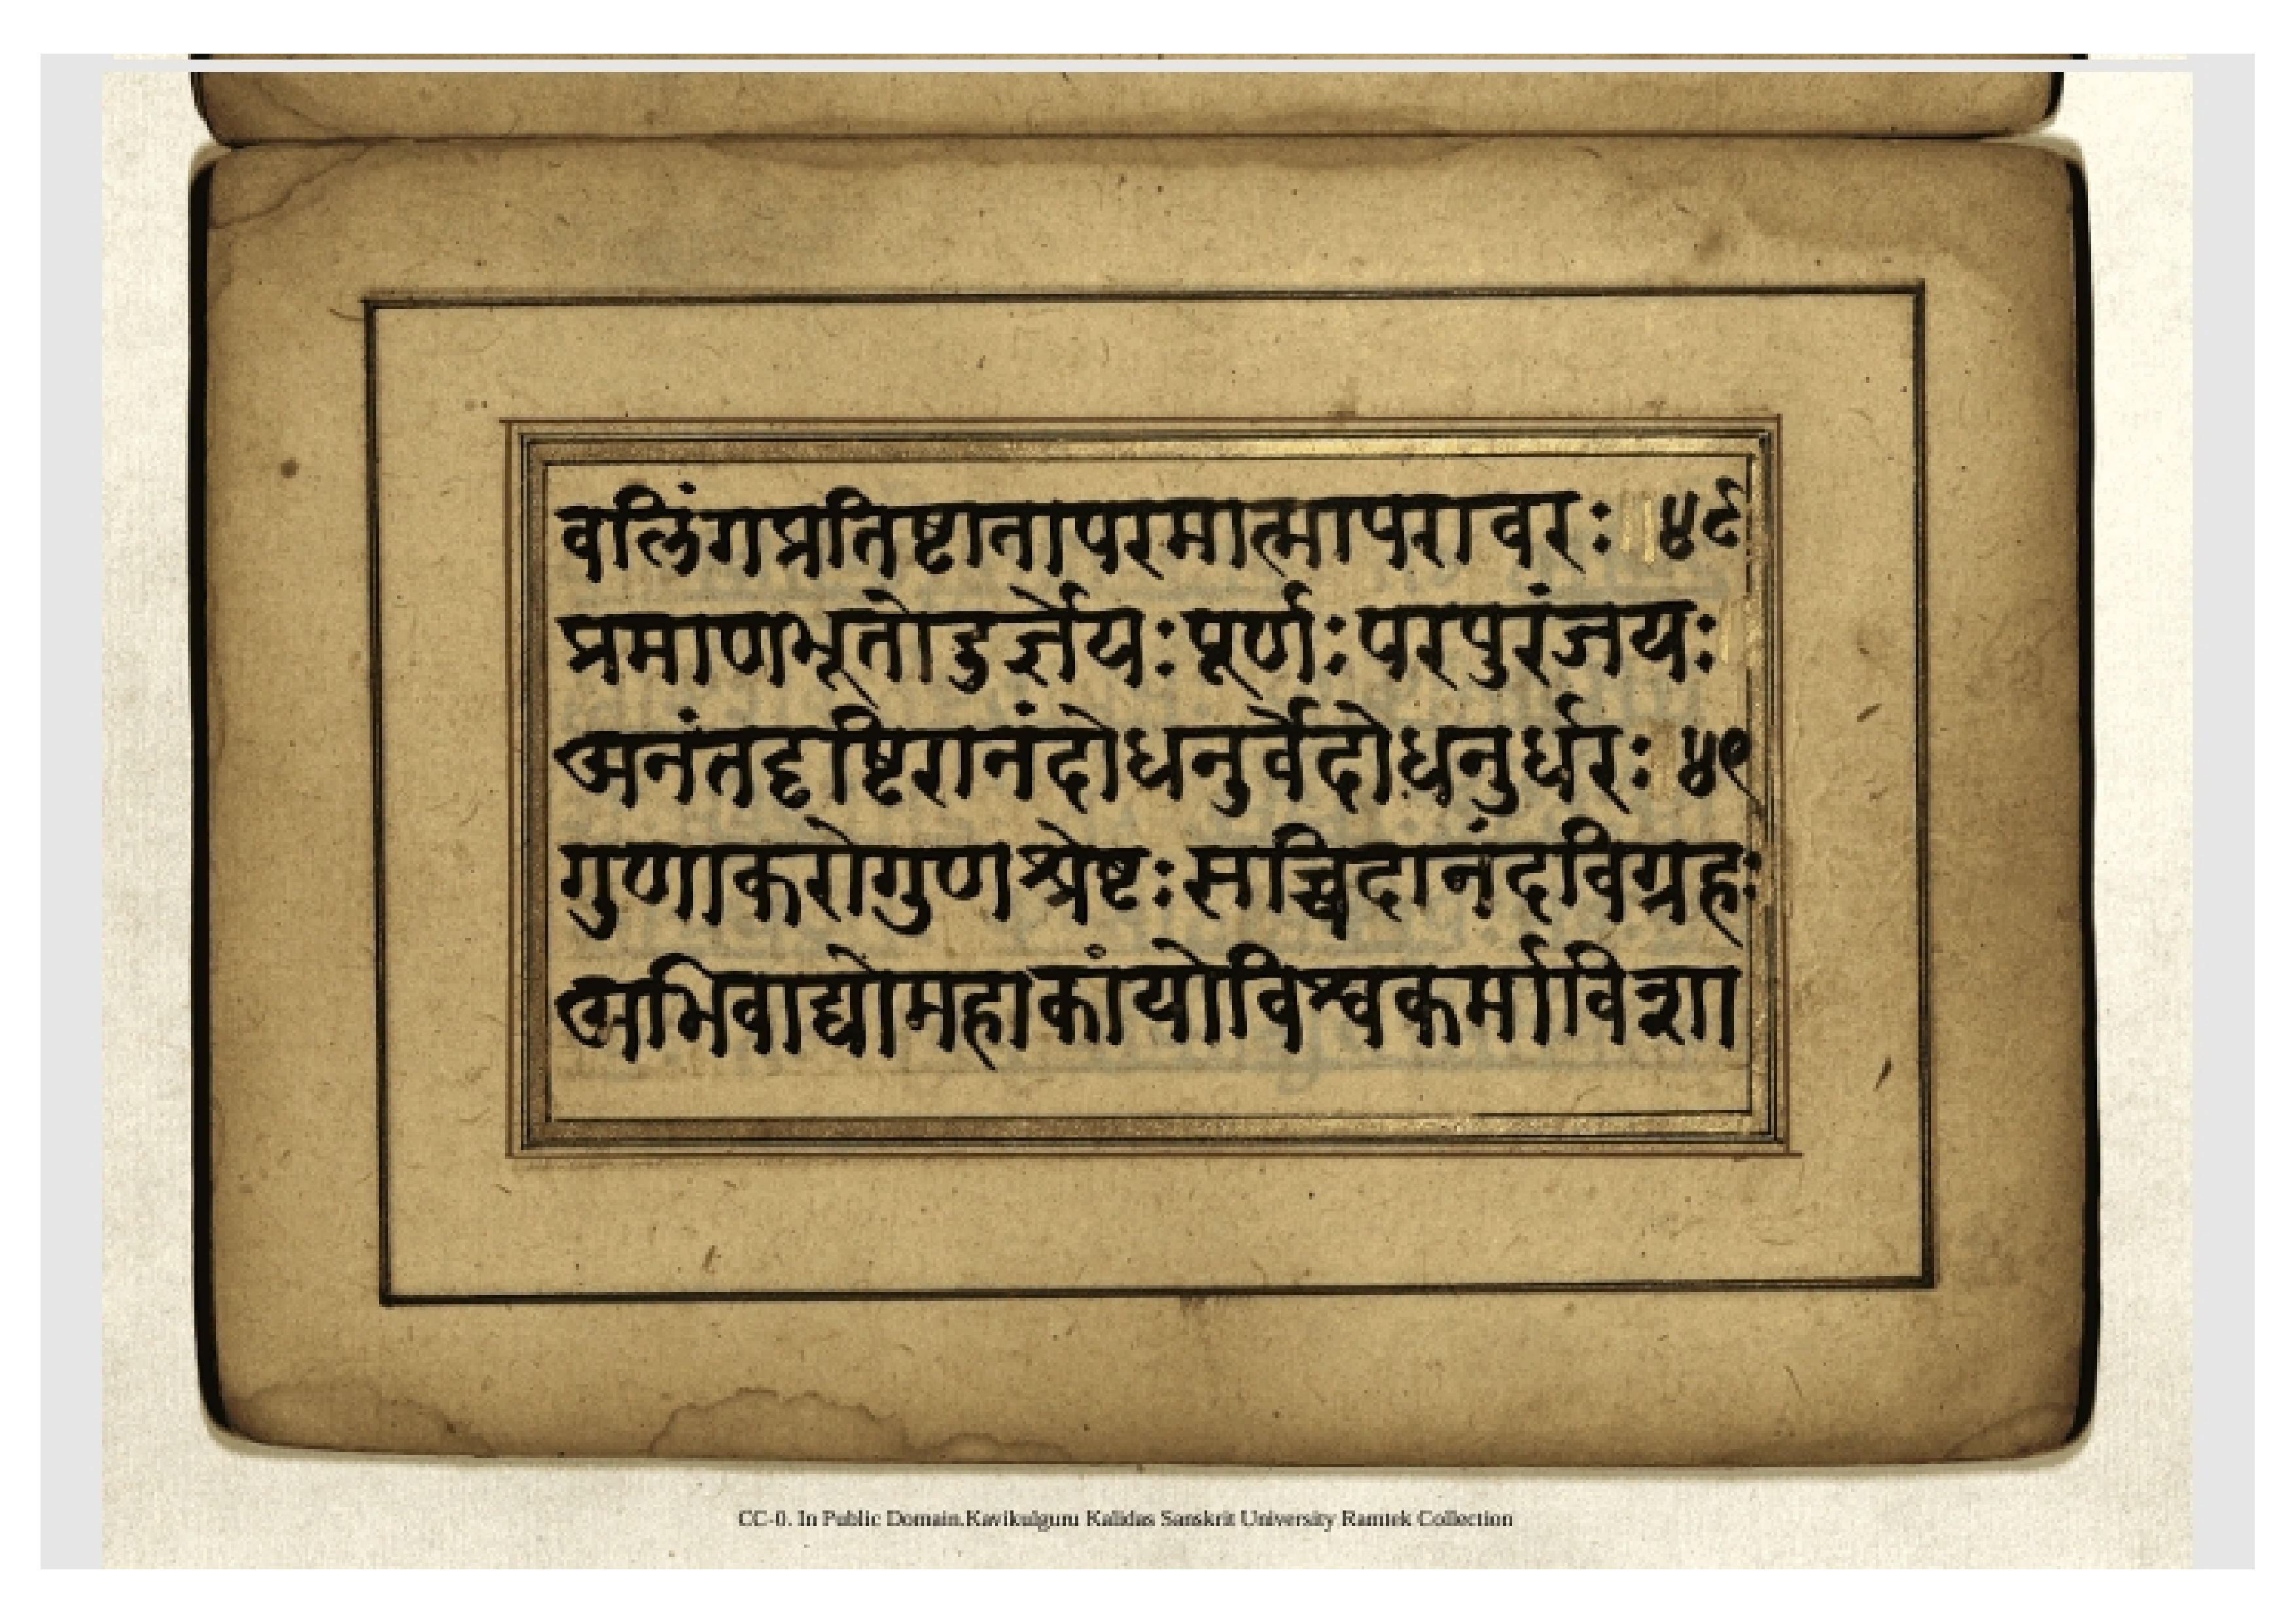 वलिंगप्रतिष्टातापरमात्मापरावरः ४८
प्रमाणभूतोदुर्ज्ञेयःपूर्णःपरपुरंजयः
अनंतदृष्टिरानंदोधनुर्वेदोधनुर्धरः ४९
गुणाकरोगुणश्रेष्टःसच्चिदानंदविग्रहः
अभिवाद्योमहाकायोविश्वकर्माविशा
CC-0. In Public Domain.Kavikulguru Kalidas Sanskrit University Ramtek Collection